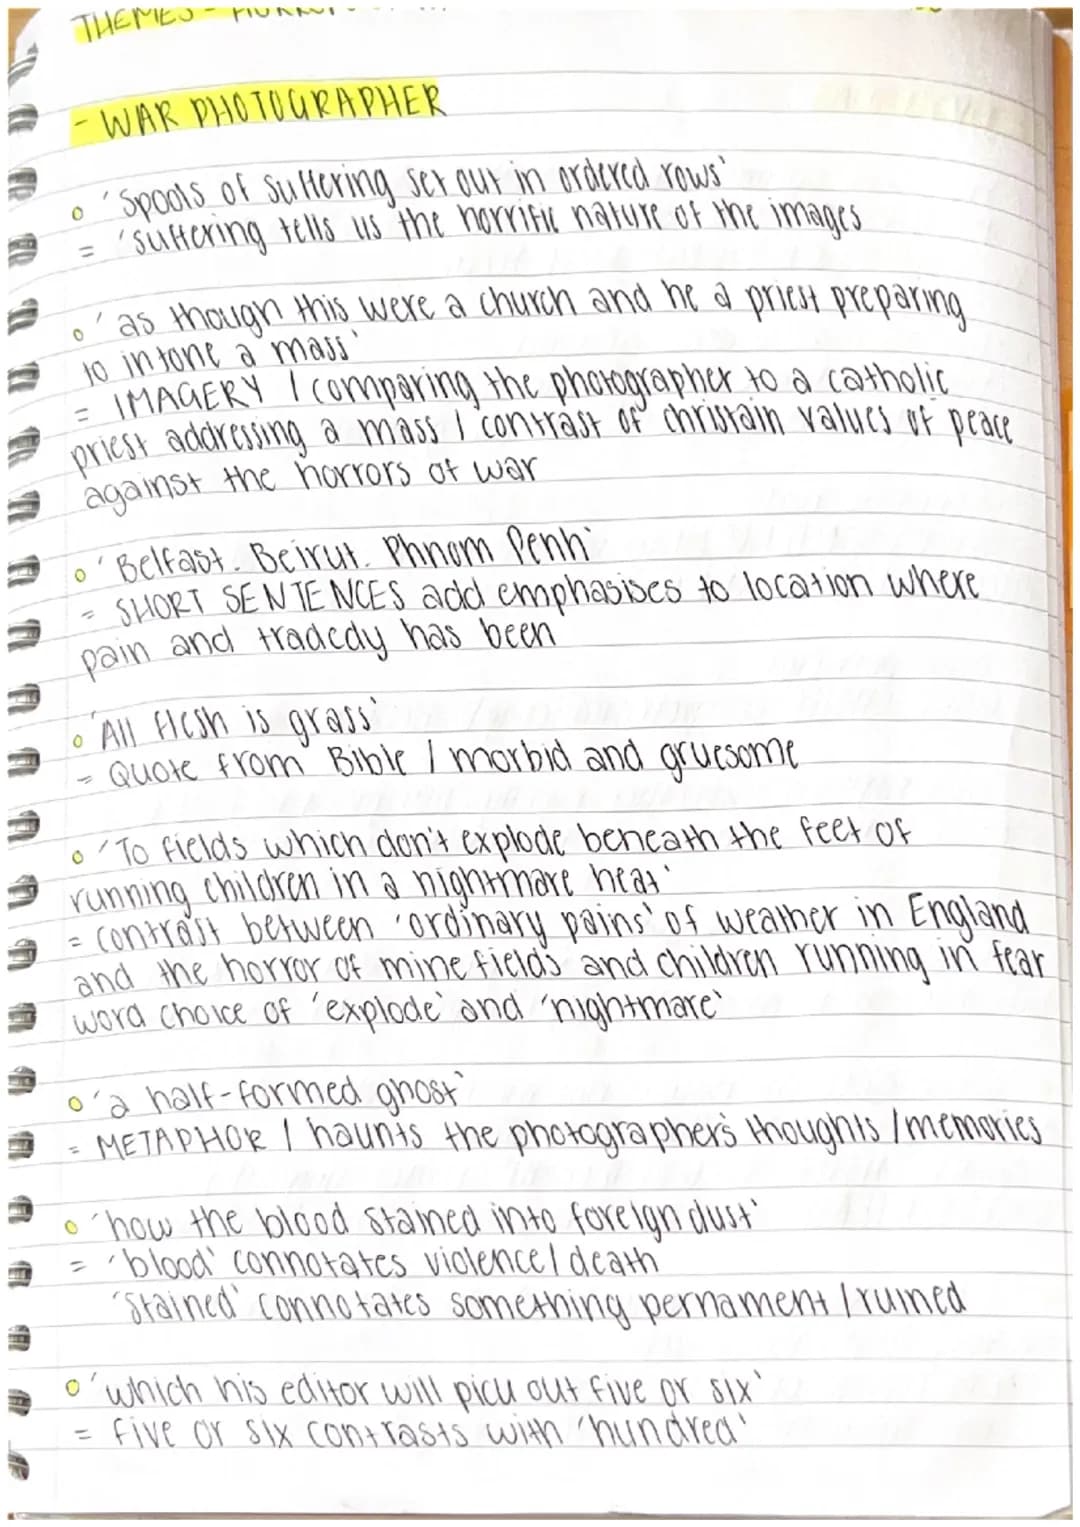 THEMES -
- WAR PHOTOGRAPHER
o 'Spools of suffering set out in ordered rows'
= 'suffering tells us the horrific nature of the images
o 'as though this were a church and he a priest preparing
to intone a mass'
= IMAGERY / comparing the photographer to a catholic
priest addressing a mass / contrast of christain values of peace
against the horrors of war
o 'Belfast. Beirut. Phnom Penh'
= SHORT SENTENCES add emphasises to location where
pain and tradedy has been
o 'All flesh is grass'
= Quote from Bible / morbid and gruesome
o 'To fields which don't explode beneath the feet of
running children in a nightmare heat'
= contrast between 'ordinary pains' of weather in England
and the horror of mine fields and children running in fear
word choice of 'explode' and 'nightmare'
o 'a half-formed ghost'
= METAPHOR / haunts the photographer's thoughts / memories
o 'how the blood stained into foreign dust'
= 'blood' connotates violence / death
'stained' connotates something pernament / ruined
o 'which his editor will pick out five or six'
= five or six contrasts with 'hundred'